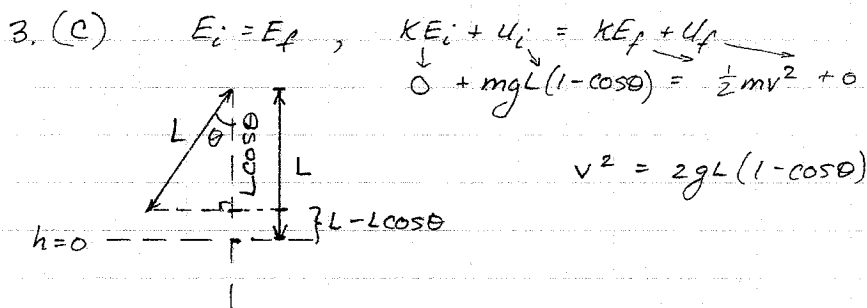 3. (C) E_i = E_f , KE_i + U_i = KE_f + U_f
0 + mgL(1-cosθ) = ½mv² + 0
L θ Lcosθ L
v² = 2gL(1-cosθ)
}L-Lcosθ
h=0